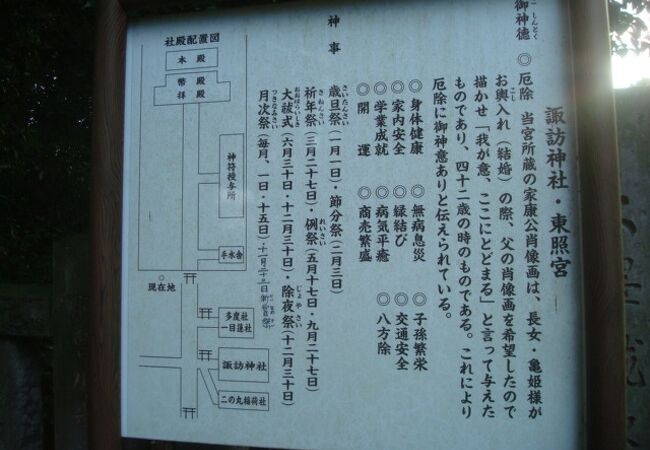 諏訪神社・東照宮
御神徳
しんとく
◎厄除 当宮所蔵の家康公肖像画は、長女・亀姫様が
お輿入れ(結婚)の際、父の肖像画を希望したので
こし
描かせ「我が意、ここにとどまる」と言って与えた
ものであり、四十二歳の時のものである。これにより
厄除に御神意ありと伝えられている。
◎身体健康 ◎無病息災 ◎子孫繁栄
◎家内安全 ◎縁結び ◎交通安全
◎学業成就 ◎病気平癒 ◎八方除
◎開運 ◎商売繁盛
神事
歳旦祭(一月一日)・節分祭(二月三日)
さいたんさい
祈年祭(三月二十七日)・例祭(五月十七日・九月二十七日)
きねんさい
れいさい
大祓式(六月三十日・十二月三十日)・除夜祭(十二月三十日)
おおはらいしき
じょやさい
月次祭(毎月、一日・十五日)
つきなみさい
社殿配置図
本殿
幣殿
拝殿
神符授与所
手水舎
現在地
多度社
一目蓮社
諏訪神社
二の丸稲荷社